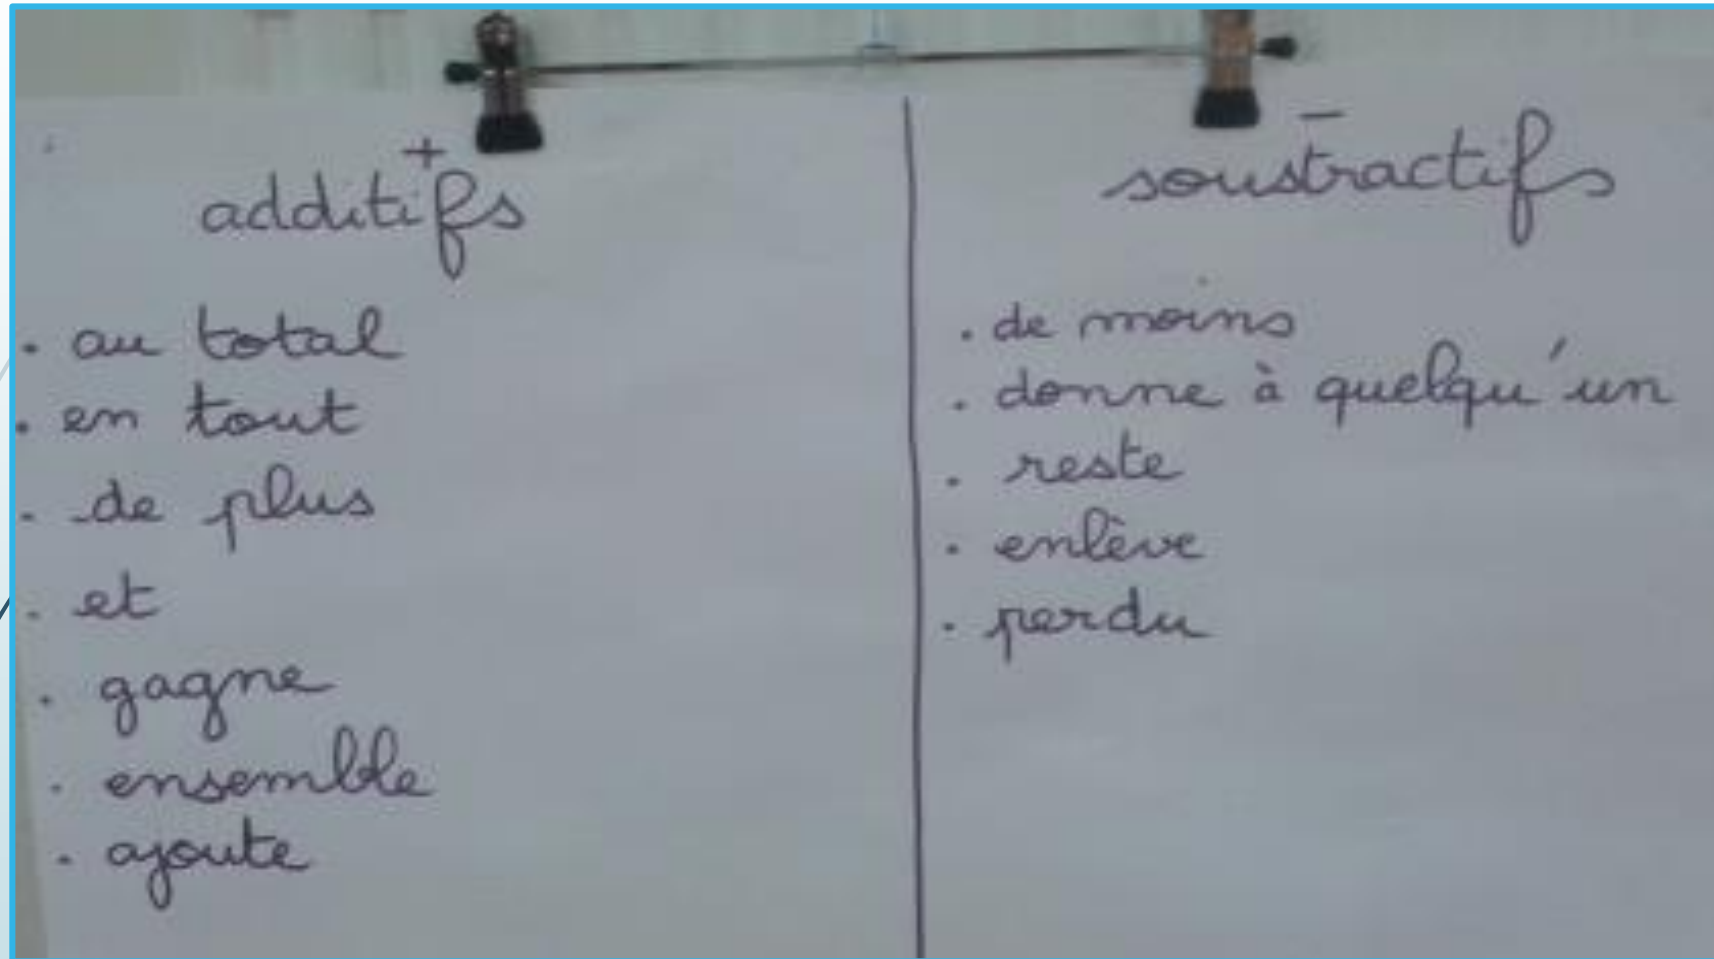 +
additifs
. au total
. en tout
. de plus
. et
. gagne
. ensemble
. ajoute
-
soustractifs
. de moins
. donne à quelqu'un
. reste
. enlève
. perdu